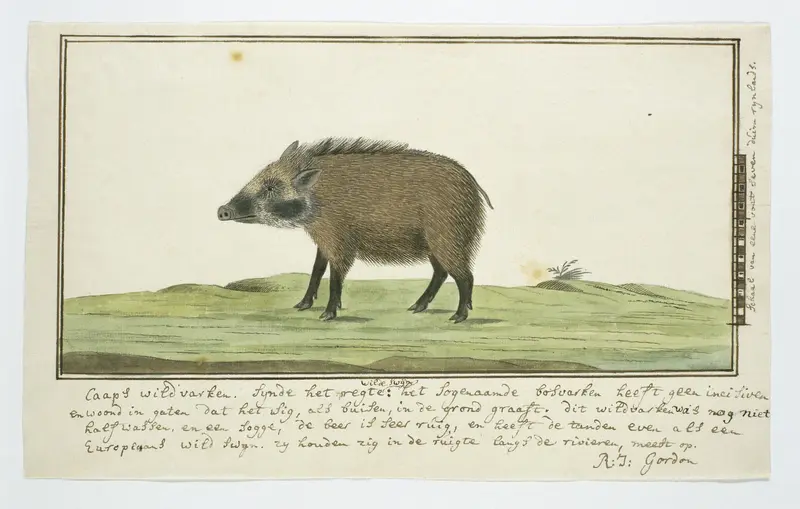 wilde swyn
Caaps wild varken. synde het regte: het sogenaamde bosvarken heeft geen incisiven
en woond in gaten dat het sig, als buisen, in de grond graaft. dit wildvarken was nog niet
half wassen, en een sogge, de beer is seer ruig, en heeft de tanden even als een
Europeaans wild swyn. zy houden zig in de ruigte langs de rivieren, meest op.
R: J: Gordon
Schaal van eene voet seven duim rynlands.